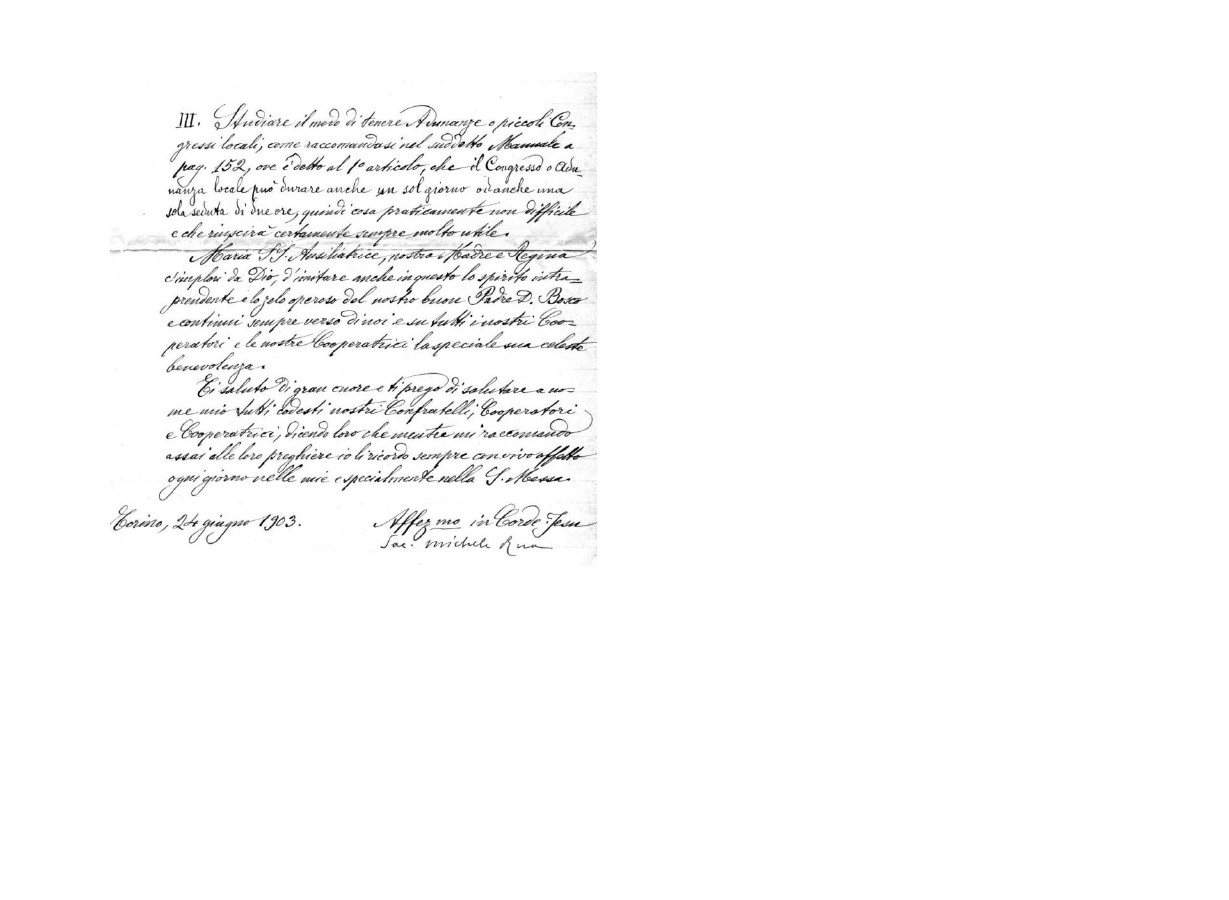 III. Studiare il modo di tenere Adunanze o piccoli Con-
gressi locali, come raccomandasi nel suddetto Manuale a
pag. 152, ove è detto al 1º articolo, che il Congresso o Adu-
nanza locale può durare anche un sol giorno od anche una
sola seduta di due ore, quindi cosa praticamente non difficile
e che riuscirà certamente sempre molto utile.
Maria SS. Ausiliatrice, nostra Madre e Regina
c'implori da Dio, d'imitare anche in questo lo spirito intra-
prendente e lo zelo operoso del nostro buon Padre D. Bosco
e continui sempre verso di noi e su tutti i nostri Coo-
peratori e le nostre Cooperatrici la speciale sua celeste
benevolenza.
Ti saluto di gran cuore e ti prego di salutare a no-
me mio tutti codesti nostri Confratelli, Cooperatori
e Cooperatrici, dicendo loro che mentre mi raccomando
assai alle loro preghiere io li ricordo sempre con vivo affetto
ogni giorno nelle mie e specialmente nella S. Messa.
Torino, 24 giugno 1903.
Affez mo in Corde Jesu
Sac. Michele Rua